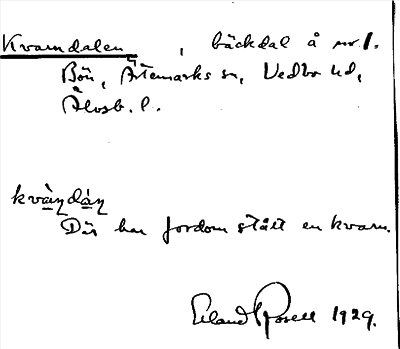 Kvarndalen, bäckdal å nr 1.
Bön, Ärtemarks sn, Vedbo hd,
Älvsb. l.
kvàṇdáṇ
Där har fordom stått en kvarn.
Erland Rosell 1929.